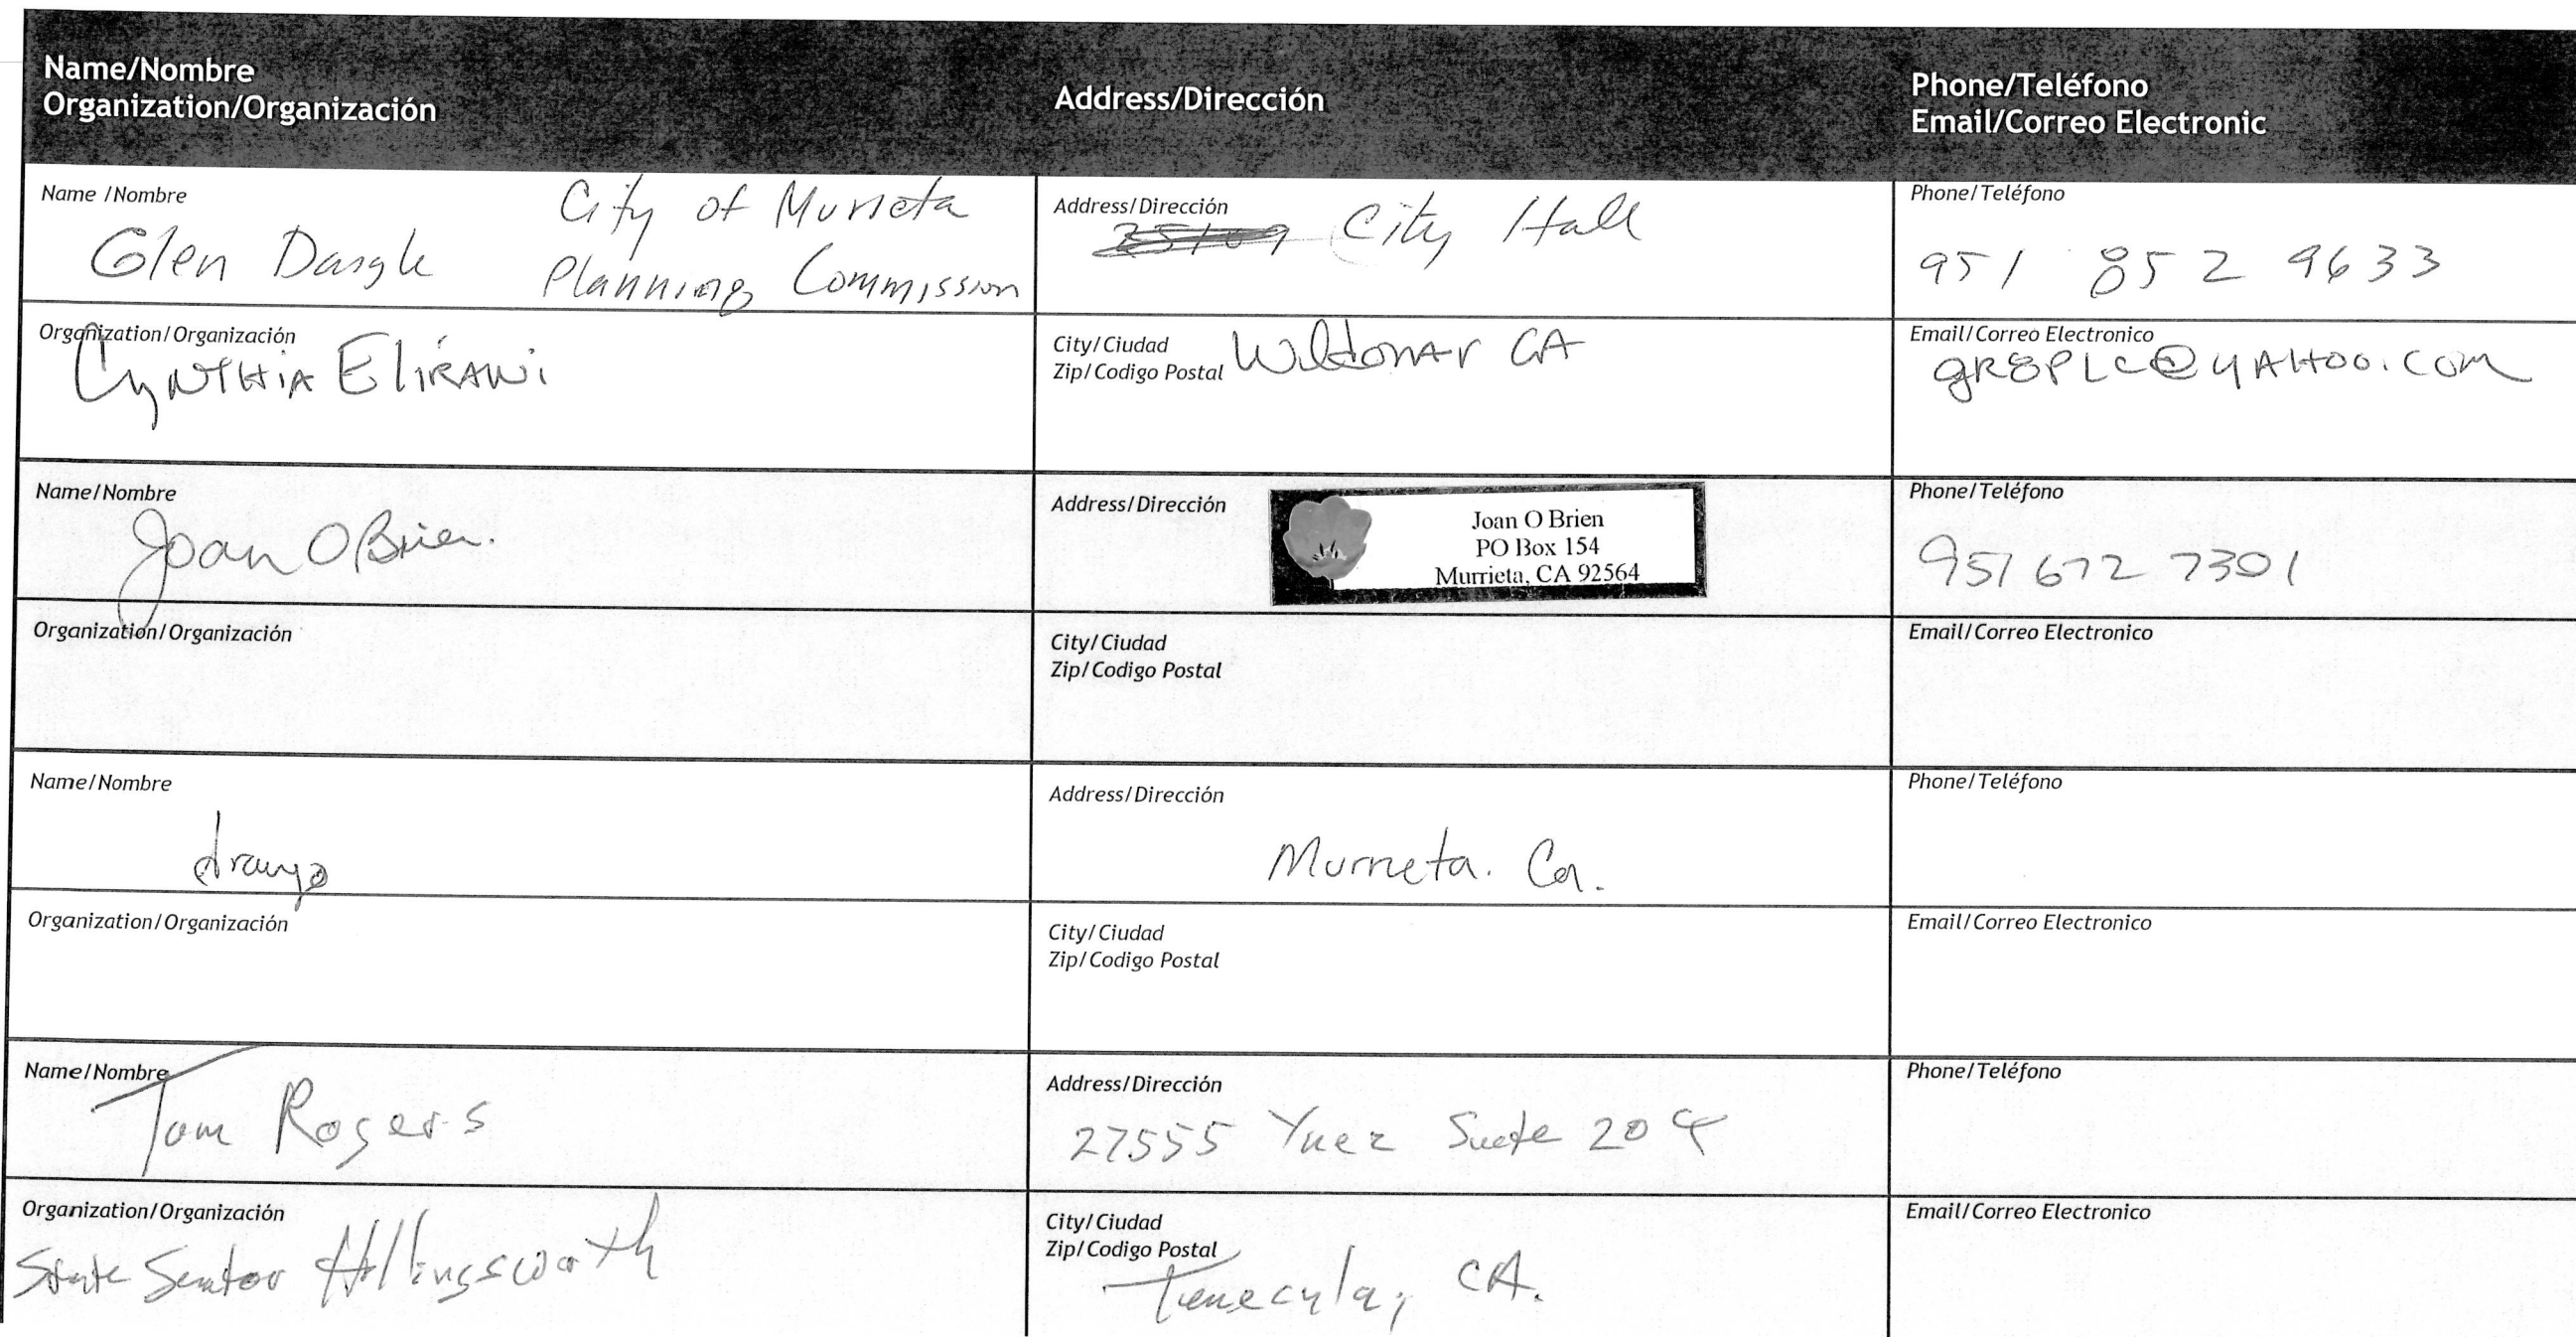 Name/Nombre
Organization/Organización
Address/Dirección
Phone/Teléfono
Email/Correo Electronic
Name /Nombre
City of Murrieta
Glen Daigle
Planning Commission
Address/Dirección
City Hall
Phone/Teléfono
951 852 9633
Organization/Organización
Cynthia Elirani
City/Ciudad
Zip/Codigo Postal
Wildomar CA
Email/Correo Electronico
gR8PLC@yAHoo.com
Name/Nombre
Joan O Brien.
Address/Dirección
Joan O Brien
PO Box 154
Murrieta, CA 92564
Phone/Teléfono
951 672 7301
Organization/Organización
City/Ciudad
Zip/Codigo Postal
Email/Correo Electronico
Name/Nombre
Address/Dirección
Murrieta. Ca.
Phone/Teléfono
Organization/Organización
City/Ciudad
Zip/Codigo Postal
Email/Correo Electronico
Name/Nombre
Tom Rogers
Address/Dirección
27555 Ynez Suite 204
Phone/Teléfono
Organization/Organización
State Senator Hollingsworth
City/Ciudad
Zip/Codigo Postal
Temecula, CA.
Email/Correo Electronico